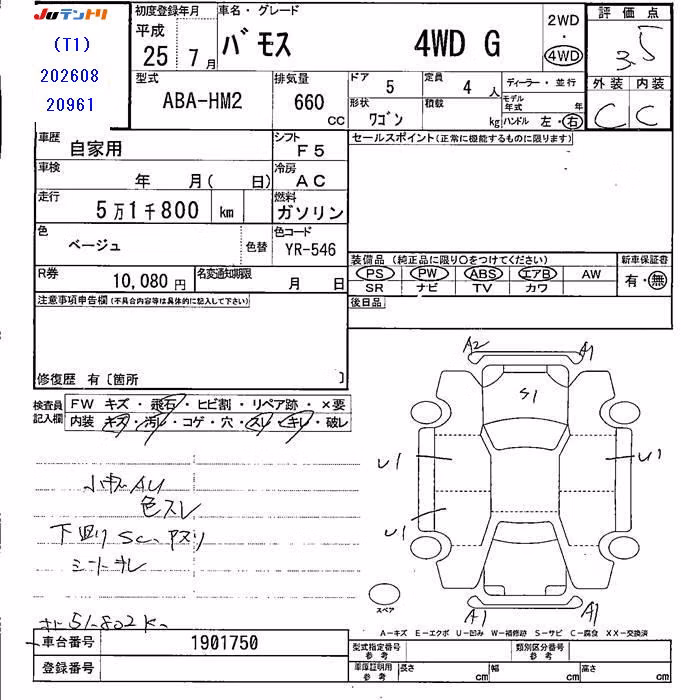 Juテントリ
(T1)
202608
20961
初度登録年月
平成
25 7月
車名・グレード
バモス 4WD G
2WD
・
4WD
評価点
3.5
外装 内装
C C
型式
ABA-HM2
排気量
660 CC
ドア
5
定員
4 人
ディーラー・並行
形状
ワゴン
積載
kg
モデル年式 年
ハンドル 左・右
車歴
自家用
シフト
F5
セールスポイント(正常に機能するものに限ります)
車検
年 月( 日)
冷房
AC
走行
5万1千800 km
燃料
ガソリン
色
ベージュ
色替
色コード
YR-546
装備品(純正品に限り○をつけてください)
新車保証書
PS PW ABS エアB AW
有・無
SR ナビ TV カワ
R券
10,080円
名変通知期限
月 日
後日品
注意事項申告欄(不具合内容等は具体的に記入して下さい)
修復歴 有〔箇所 〕
検査員記入欄
FW キズ・飛石・ヒビ割・リペア跡・×要
内装 キズ・汚レ・コゲ・穴・スレ・キレ・破レ
小キズAU
色スレ
下廻りSC、
シートキレ
51.802K
A2 A1
S1
U1 U1
U1
A1 A1
スペア
A-キズ E-エクボ U-凹み W-補修跡 S-サビ C-腐食 XX-交換済
車台番号
1901750
登録番号
型式指定番号
参考
類別区分番号
参考
車庫証明用
参考
長さ cm
幅 cm
高さ cm